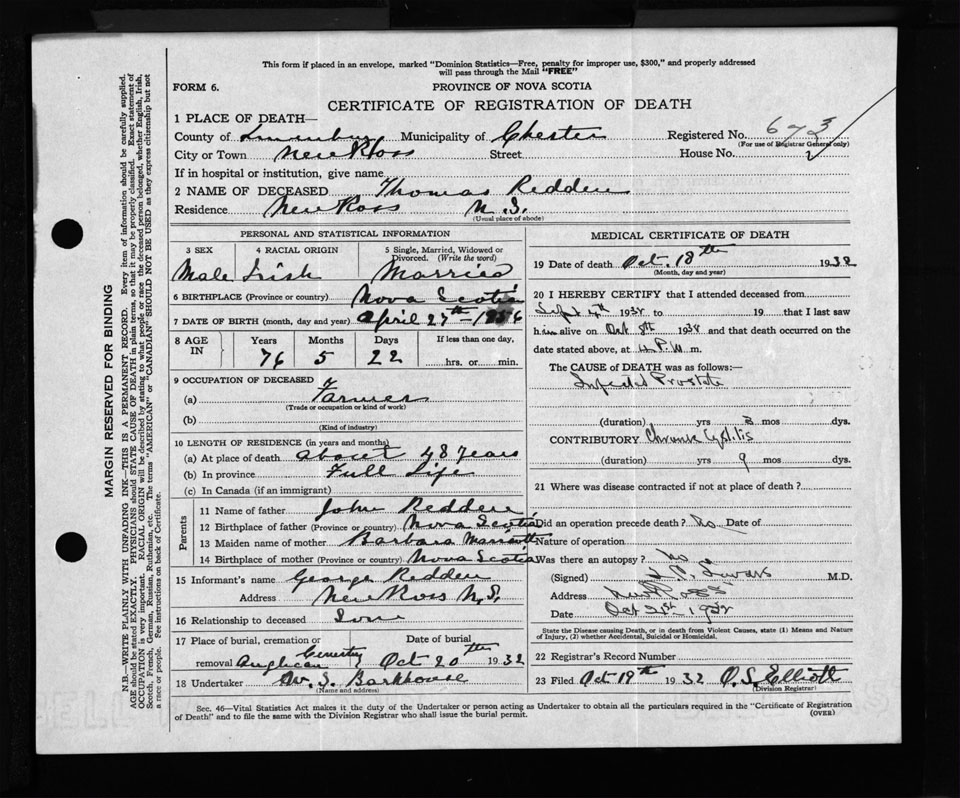 This form if placed in an envelope, marked "Dominion Statistics—Free, penalty for improper use, $300," and properly addressed
will pass through the Mail "FREE"
FORM 6.
PROVINCE OF NOVA SCOTIA
CERTIFICATE OF REGISTRATION OF DEATH
1 PLACE OF DEATH—
County of Lunenburg Municipality of Chester Registered No. 673
(For use of Registrar General only)
City or Town New Ross Street House No.
If in hospital or institution, give name
2 NAME OF DECEASED Thomas Redden
Residence New Ross N.S.
(Usual place of abode)
PERSONAL AND STATISTICAL INFORMATION
3 SEX 4 RACIAL ORIGIN 5 Single, Married, Widowed or
Divorced. (Write the word)
Male Irish Married
6 BIRTHPLACE (Province or country) Nova Scotia
7 DATE OF BIRTH (month, day and year) April 27th 1856
8 AGE IN Years Months Days If less than one day,
76 5 22 hrs. or min.
9 OCCUPATION OF DECEASED
(a) Farmer
(Trade or occupation or kind of work)
(b)
(Kind of industry)
10 LENGTH OF RESIDENCE (in years and months)
(a) At place of death about 48 years
(b) In province Full Life
(c) In Canada (if an immigrant)
Parents
11 Name of father John Redden
12 Birthplace of father (Province or country) Nova Scotia
13 Maiden name of mother Barbara
14 Birthplace of mother (Province or country) Nova Scotia
15 Informant's name George Redden
Address New Ross N.S.
16 Relationship to deceased Son
17 Place of burial, cremation or Date of burial
removal Anglican Cemetery Oct 20th 1932
18 Undertaker W. S. Barkhouse
(Name and address)
MEDICAL CERTIFICATE OF DEATH
19 Date of death Oct. 18th 1932
(Month, day and year)
20 I HEREBY CERTIFY that I attended deceased from
Sept 1932 to 19 that I last saw
him alive on Oct 8th 1932 and that death occurred on the
date stated above, at 4 P.M. m.
The CAUSE of DEATH was as follows:—
Infected Prostate
(duration) yrs 3 mos dys.
CONTRIBUTORY Chronic Cystitis
(duration) yrs 9 mos dys.
21 Where was disease contracted if not at place of death?
Did an operation precede death? No Date of
Nature of operation
Was there an autopsy? No
(Signed) M.D.
Address New Ross
Date Oct 21st 1932
State the Disease causing Death, or in death from Violent Causes, state (1) Means and Nature
of Injury, (2) whether Accidental, Suicidal or Homicidal.
22 Registrar's Record Number
23 Filed Oct 19th 1932 O. S. Elliott
(Division Registrar)
Sec. 46—Vital Statistics Act makes it the duty of the Undertaker or person acting as Undertaker to obtain all the particulars required in the "Certificate of Registration
of Death" and to file the same with the Division Registrar who shall issue the burial permit.
(OVER)
MARGIN RESERVED FOR BINDING
N.B.—WRITE PLAINLY WITH UNFADING INK—THIS IS A PERMANENT RECORD. Every item of information should be carefully supplied.
AGE should be stated EXACTLY. PHYSICIANS should STATE CAUSE OF DEATH in plain terms, so that it may be properly classified. Exact statement of
OCCUPATION is very important. RACIAL ORIGIN will be described by stating to what people or race the deceased person belonged, whether English, Irish,
Scotch, French, German, Russian, Ruthenian, etc. The terms "AMERICAN" or "CANADIAN" SHOULD NOT BE USED as they express citizenship but not
a race or people. See instructions on back of Certificate.